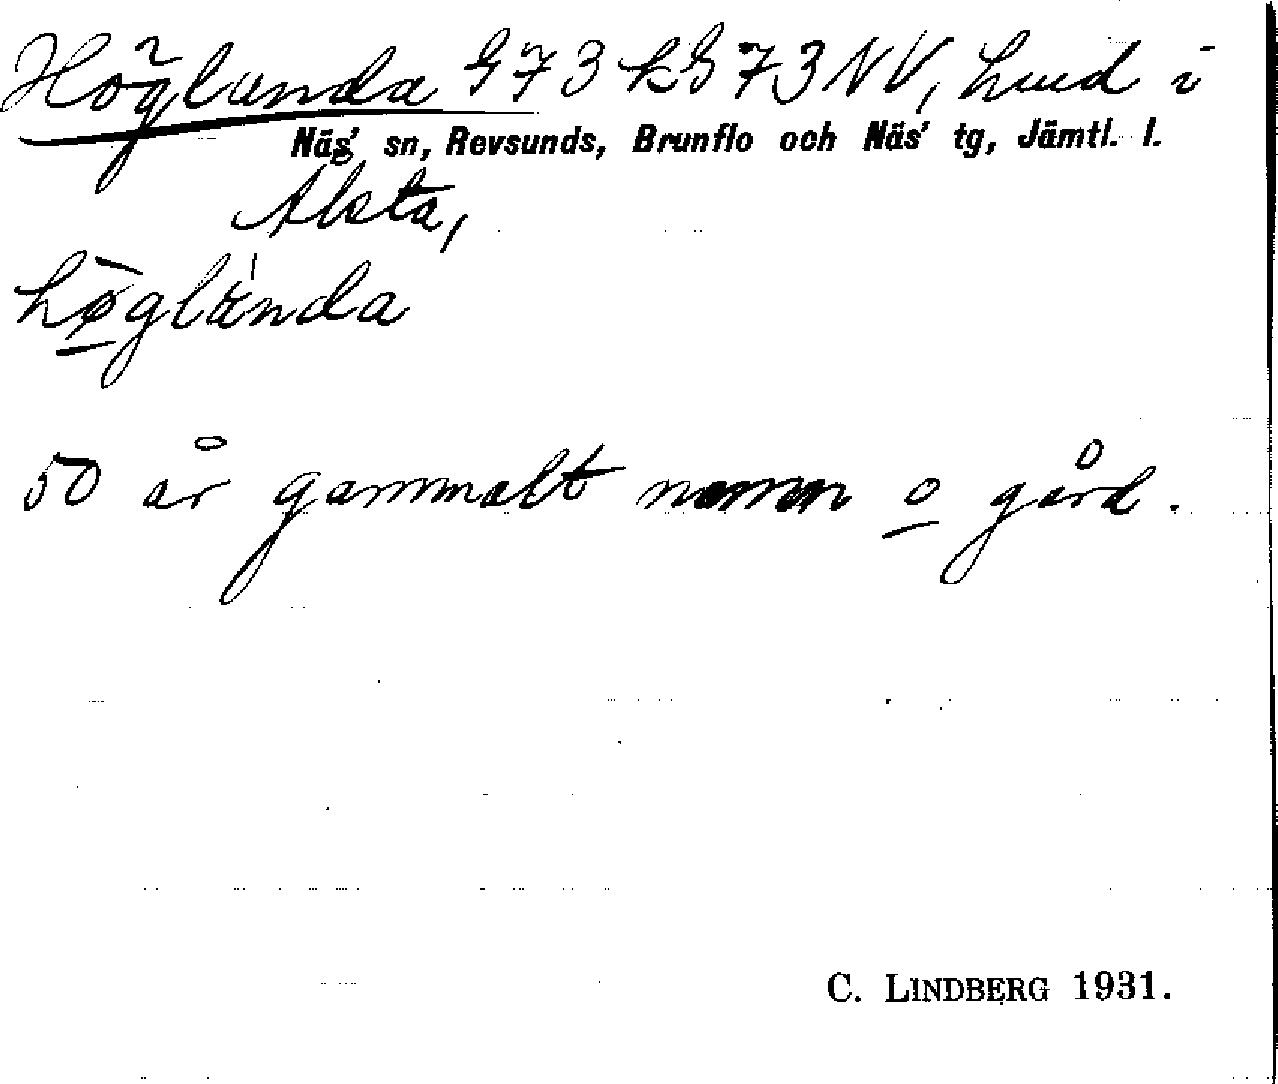 Höglanda G73 kG73NV, hmd i
Näs' sn, Revsunds, Brunflo och Näs' tg, Jämtl. l.
Alsta,
høglànda
50 år gammalt namn o gård.
C. LINDBERG 1931.